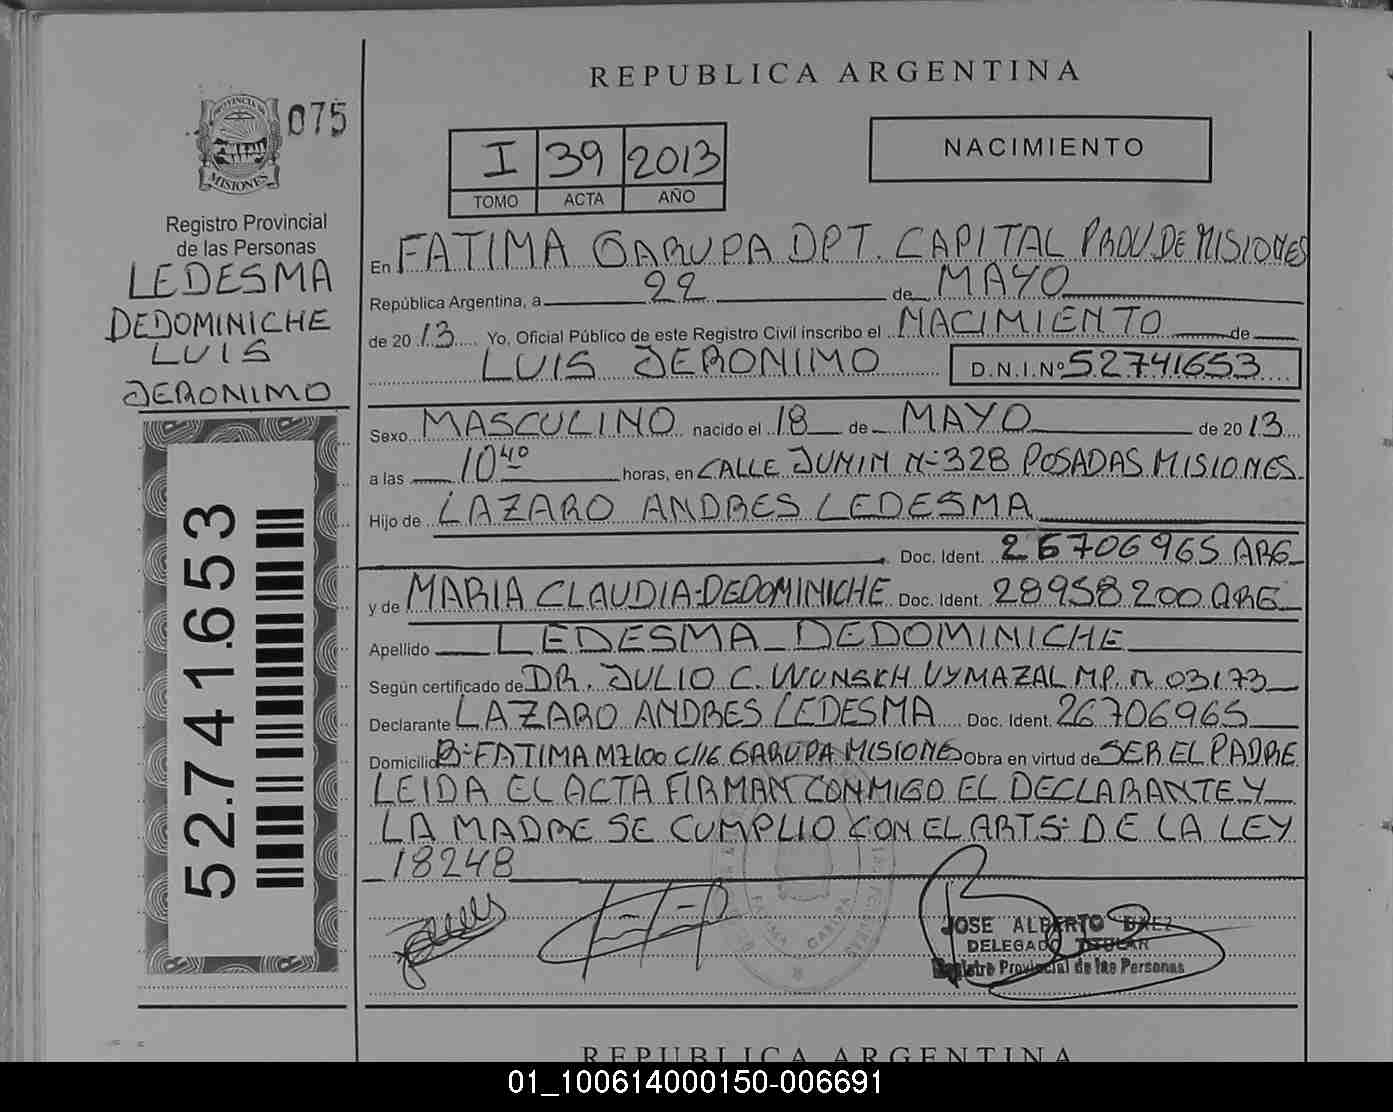 REPUBLICA ARGENTINA
PROVINCIA DE
MISIONES
075
I 39 2013
TOMO ACTA AÑO
NACIMIENTO
Registro Provincial
de las Personas
LEDESMA
DEDOMINICHE
LUIS
JERONIMO
52.741.653
En FATIMA GARUPA DPT. CAPITAL PROV. DE MISIONES
República Argentina, a 22 de MAYO
de 2013 Yo, Oficial Público de este Registro Civil inscribo el NACIMIENTO de
LUIS JERONIMO D.N.I.Nº 52741653
Sexo MASCULINO nacido el 18 de MAYO de 2013
a las 10 40 horas, en CALLE JUNIN Nº 328 POSADAS MISIONES
Hijo de LAZARO ANDRES LEDESMA
Doc. Ident. 26706965 ARG
y de MARIA CLAUDIA DEDOMINICHE Doc. Ident. 28958200 ARG
Apellido LEDESMA DEDOMINICHE
Según certificado de DR. JULIO C. WUNSKH VYMAZAL MP. N 03173
Declarante LAZARO ANDRES LEDESMA Doc. Ident. 26706965
Domicilio Bº FATIMA MZ100 C/16 GARUPA MISIONES Obra en virtud de SER EL PADRE
LEIDA EL ACTA FIRMAN CONMIGO EL DECLARANTE Y
LA MADRE SE CUMPLIO CON EL ART 5º DE LA LEY
18248
FATIMA GARUPA
JOSE ALBERTO BAEZ
DELEGADO TITULAR
Registro Provincial de las Personas
REPUBLICA ARGENTINA
01_100614000150-006691